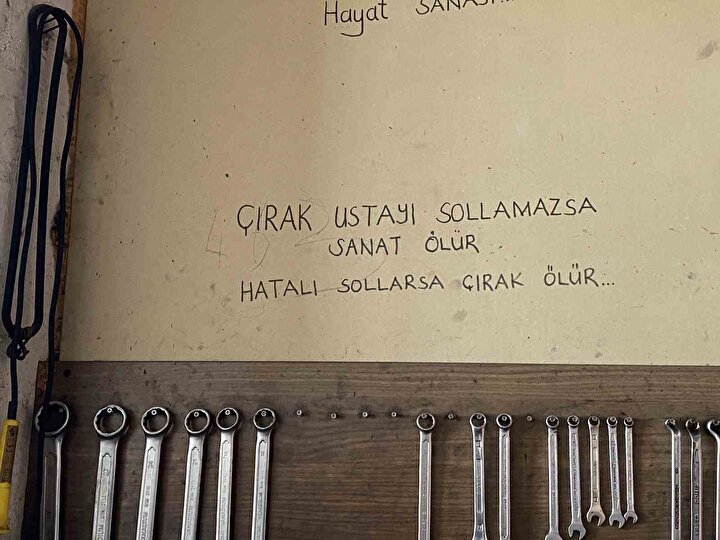 Hayat SANASI...
ÇIRAK USTAYI SOLLAMAZSA
SANAT ÖLÜR
HATALI SOLLARSA ÇIRAK ÖLÜR...